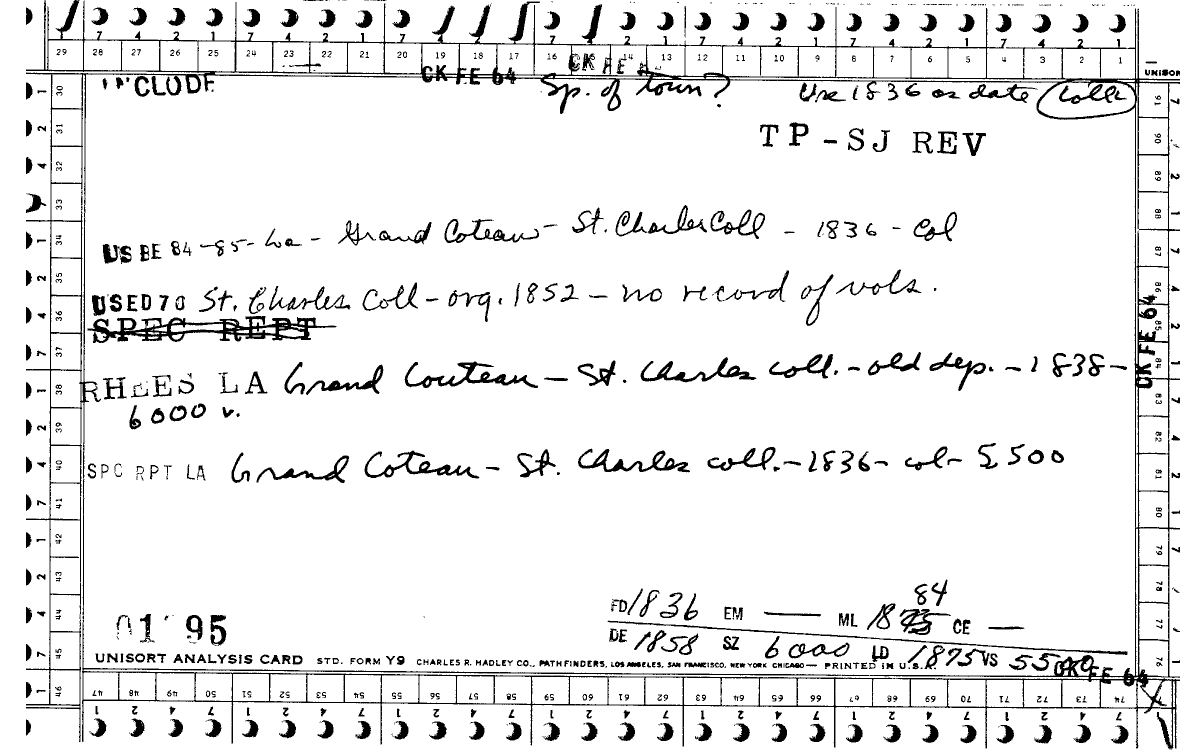 7 4 2 1 7 4 2 1 7 4 2 1 7 4 2 1 7 4 2 1 7 4 2 1 7 4 2 1
29 28 27 26 25 24 23 22 21 20 19 18 17 16 15 14 13 12 11 10 9 8 7 6 5 4 3 2 1
INCLUDE CK FE 64 CK FE
Sp. of town? Use 1836 as date Coll
TP-SJ REV
US BE 84-85-La- Grand Coteau- St. Charles Coll - 1836 - Col
USED 70 St. Charles Coll - org. 1852 - no record of vols.
SPEC REPT
RHEES LA Grand Couteau - St. Charles coll. - old dep. - 1838-
6000 v.
SPC RPT LA Grand Coteau - St. Charles coll. - 1836 - col - 5,500
CK FE 64
84
FD 1836 EM — ML 1875 CE —
DE 1858 SZ 6000 LD 1875 VS 5500
CK FE 64
01 95
UNISORT ANALYSIS CARD STD. FORM Y9 CHARLES R. HADLEY CO., PATHFINDERS, LOS ANGELES, SAN FRANCISCO, NEW YORK CHICAGO — PRINTED IN U.S.A.
46 47 48 49 50 51 52 53 54 55 56 57 58 59 60 61 62 63 64 65 66 67 68 69 70 71 72 73 74